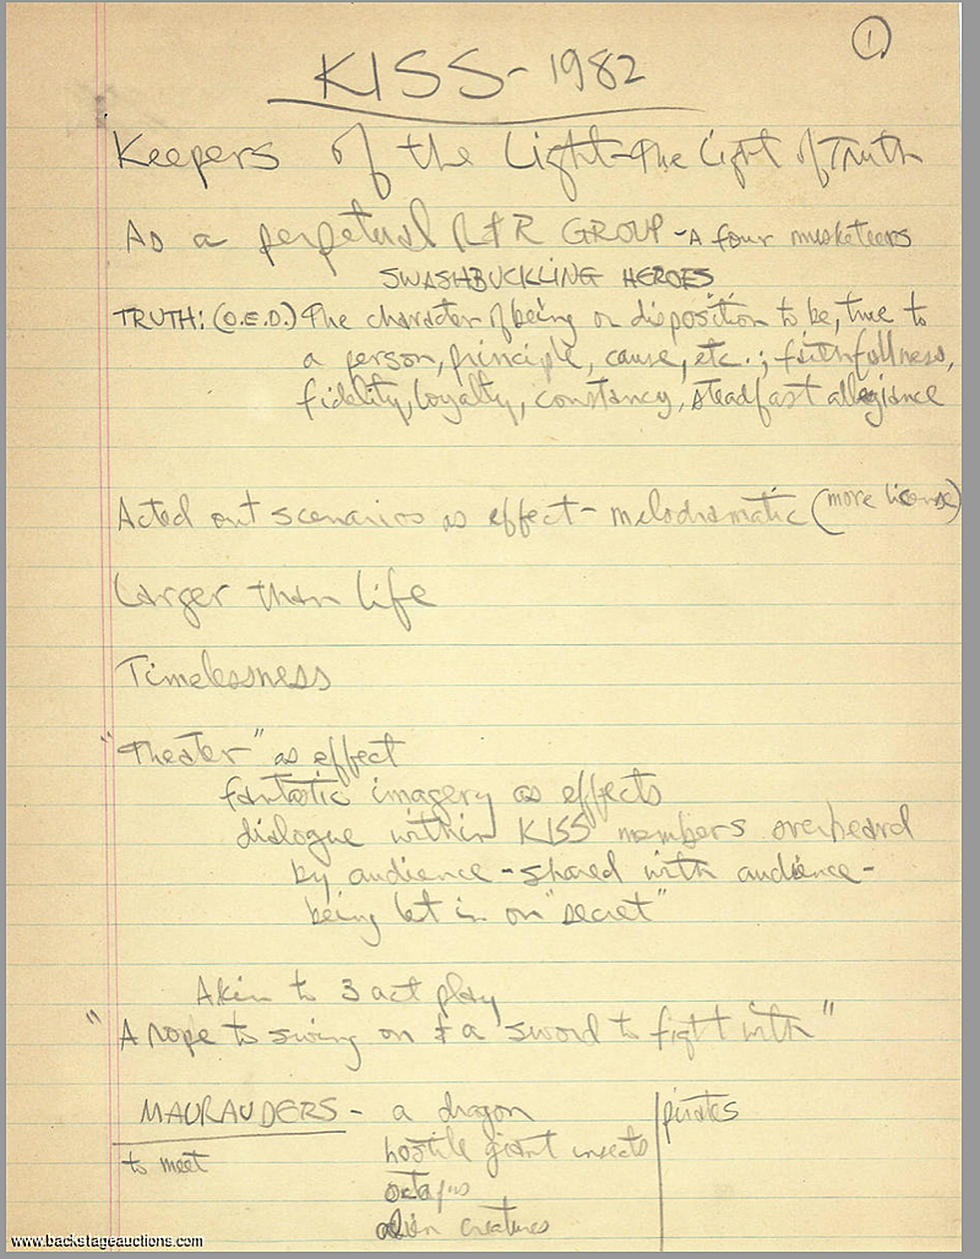 1
KISS - 1982
Keepers of the Light - The Light of Truth
As a perpetual R & R GROUP - A four musketeers
SWASHBUCKLING HEROES
TRUTH: (O.E.D.) The character of being or disposition to be, true to
a person, principle, cause, etc.; faithfullness,
fidelity, loyalty, constancy, steadfast allegiance
Acted out scenarios as effect - melodramatic (more license)
Larger than life
Timelessness
"Theater" as effect
fantastic imagery as effects
dialogue within KISS members overheard
by audience - shared with audience -
being let in on "secret"
Akin to 3 act play
"A rope to swing on & a sword to fight with"
MAURAUDERS - a dragon | pirates
to meet hostile giant insects
octopus
alien creatures
www.backstageauctions.com